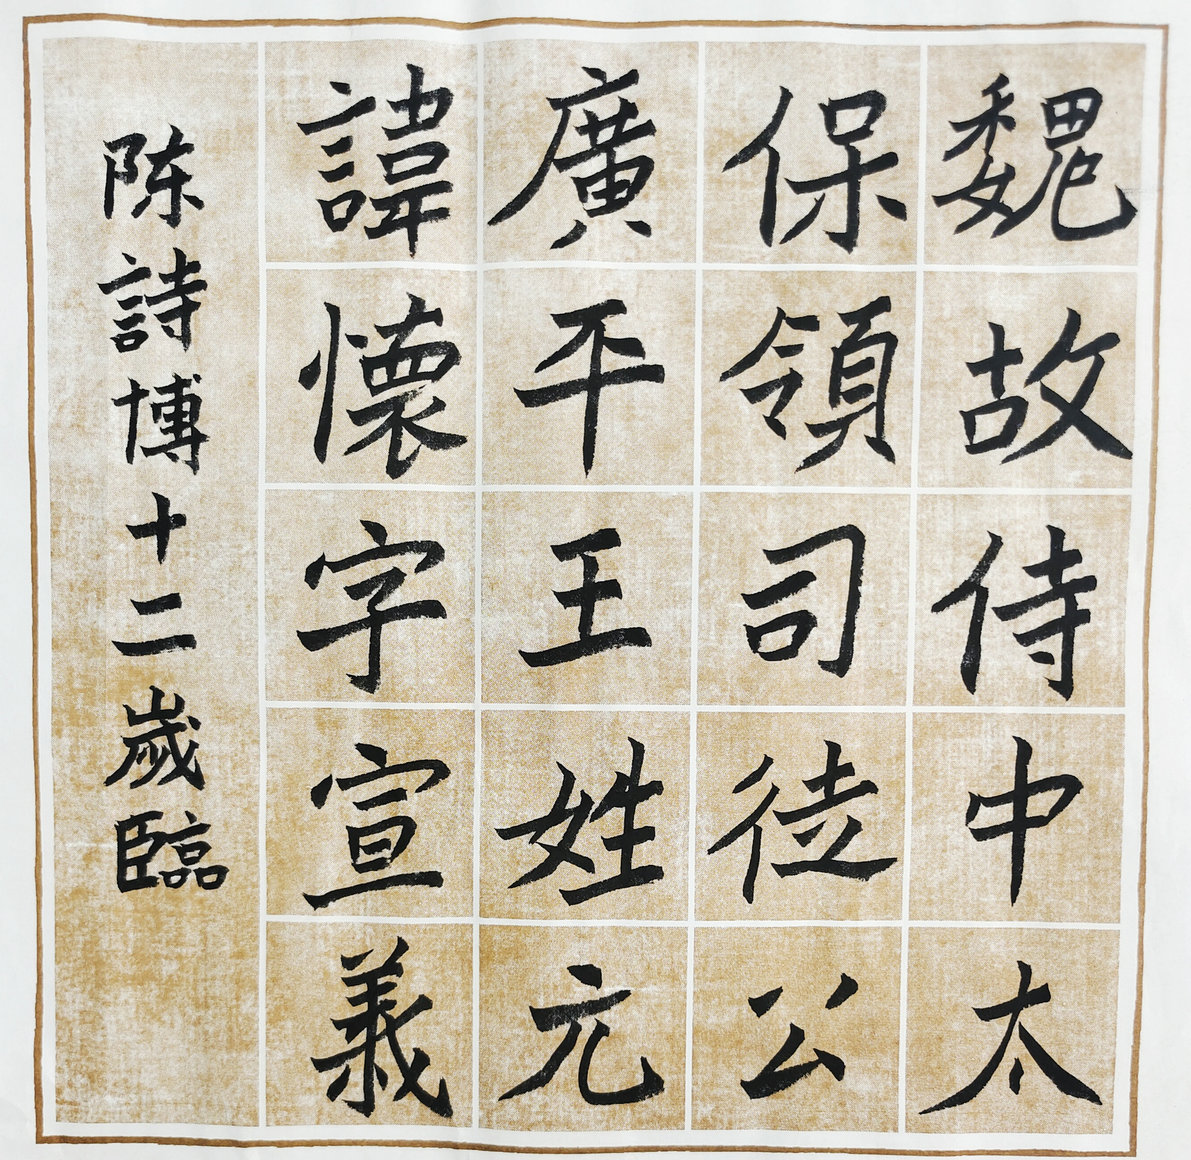 魏故侍中太
保領司徒公
廣平王姓元
諱懷字宣義
陈詩博十二歲臨